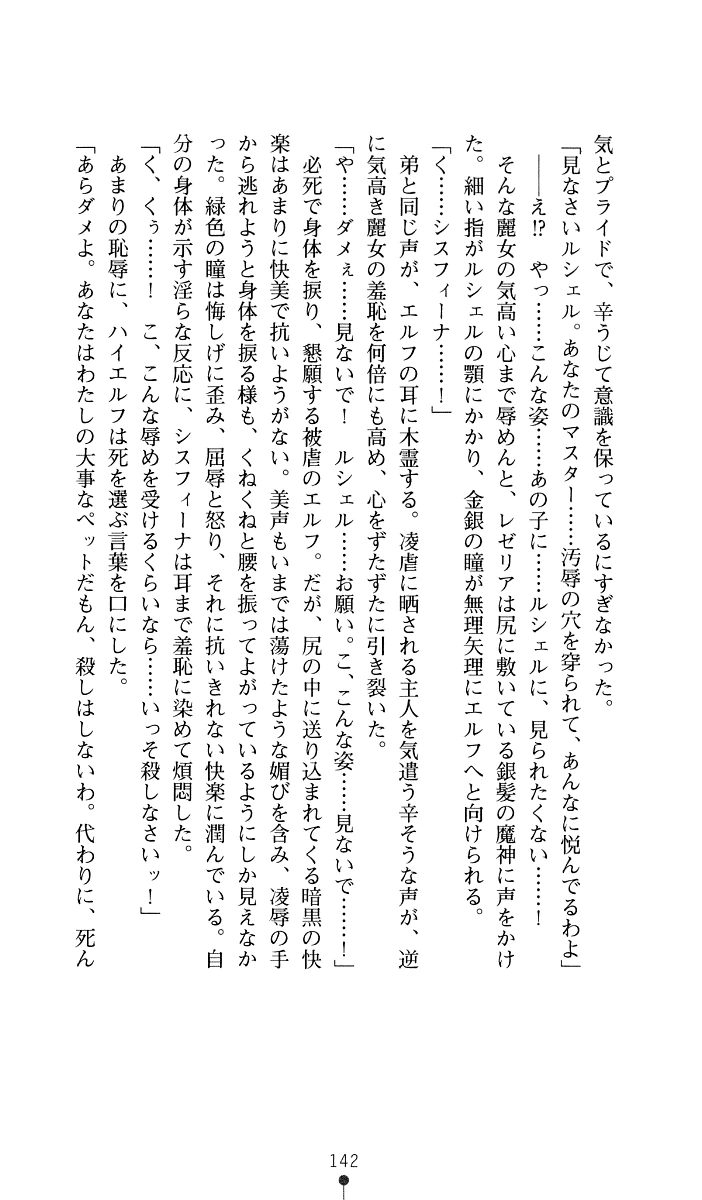 気とプライドで、辛うじて意識を保っているにすぎなかった。
「見なさいルシェル。あなたのマスター……汚辱の穴を穿られて、あんなに悦んでるわよ」
――え!?　やっ……こんな姿……あの子に……ルシェルに、見られたくない……！
そんな麗女の気高い心まで辱めんと、レゼリアは尻に敷いている銀髪の魔神に声をかけ
た。細い指がルシェルの顎にかかり、金銀の瞳が無理矢理にエルフへと向けられる。
「く……シスフィーナ……！」
弟と同じ声が、エルフの耳に木霊する。凌虐に晒される主人を気遣う辛そうな声が、逆
に気高き麗女の羞恥を何倍にも高め、心をずたずたに引き裂いた。
「や……ダメぇ……見ないで！　ルシェル……お願い。こ、こんな姿……見ないで……！」
必死で身体を捩り、懇願する被虐のエルフ。だが、尻の中に送り込まれてくる暗黒の快
楽はあまりに快美で抗いようがない。美声もいまでは蕩けたような媚びを含み、凌辱の手
から逃れようと身体を捩る様も、くねくねと腰を振ってよがっているようにしか見えなか
った。緑色の瞳は悔しげに歪み、屈辱と怒り、それに抗いきれない快楽に潤んでいる。自
分の身体が示す淫らな反応に、シスフィーナは耳まで羞恥に染めて煩悶した。
「く、くぅ……！　こ、こんな辱めを受けるくらいなら……いっそ殺しなさいッ！」
あまりの恥辱に、ハイエルフは死を選ぶ言葉を口にした。
「あらダメよ。あなたはわたしの大事なペットだもん、殺しはしないわ。代わりに、死ん
142